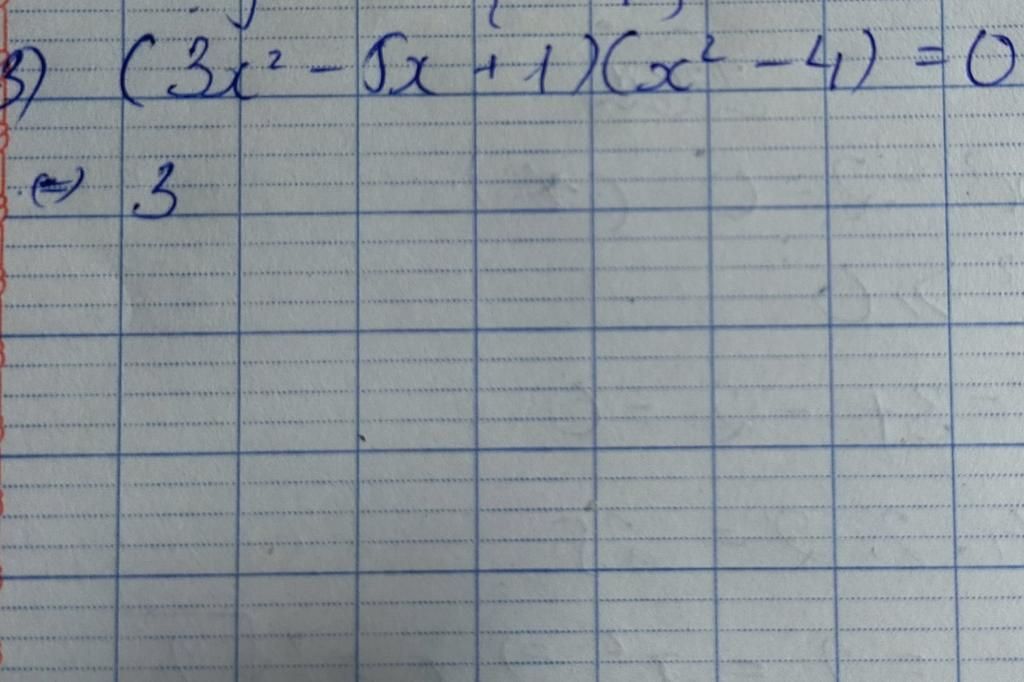 3) (3x² - 5x + 1)(x² - 4) = 0
⇔ 3